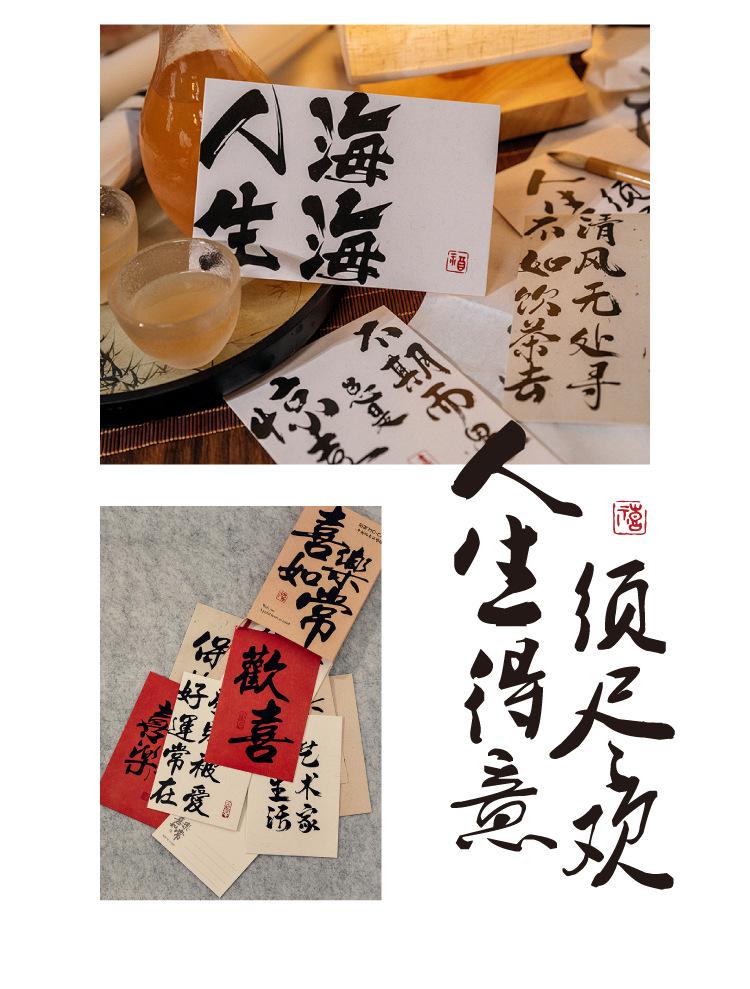 人生
海海
清风无处寻
不如饮茶去
人生
须
不期而
惊喜
人生得意
须尽欢
禧
喜樂
如常
歡喜
喜樂
好運常在
被愛
艺术家
生活
喜樂
如常